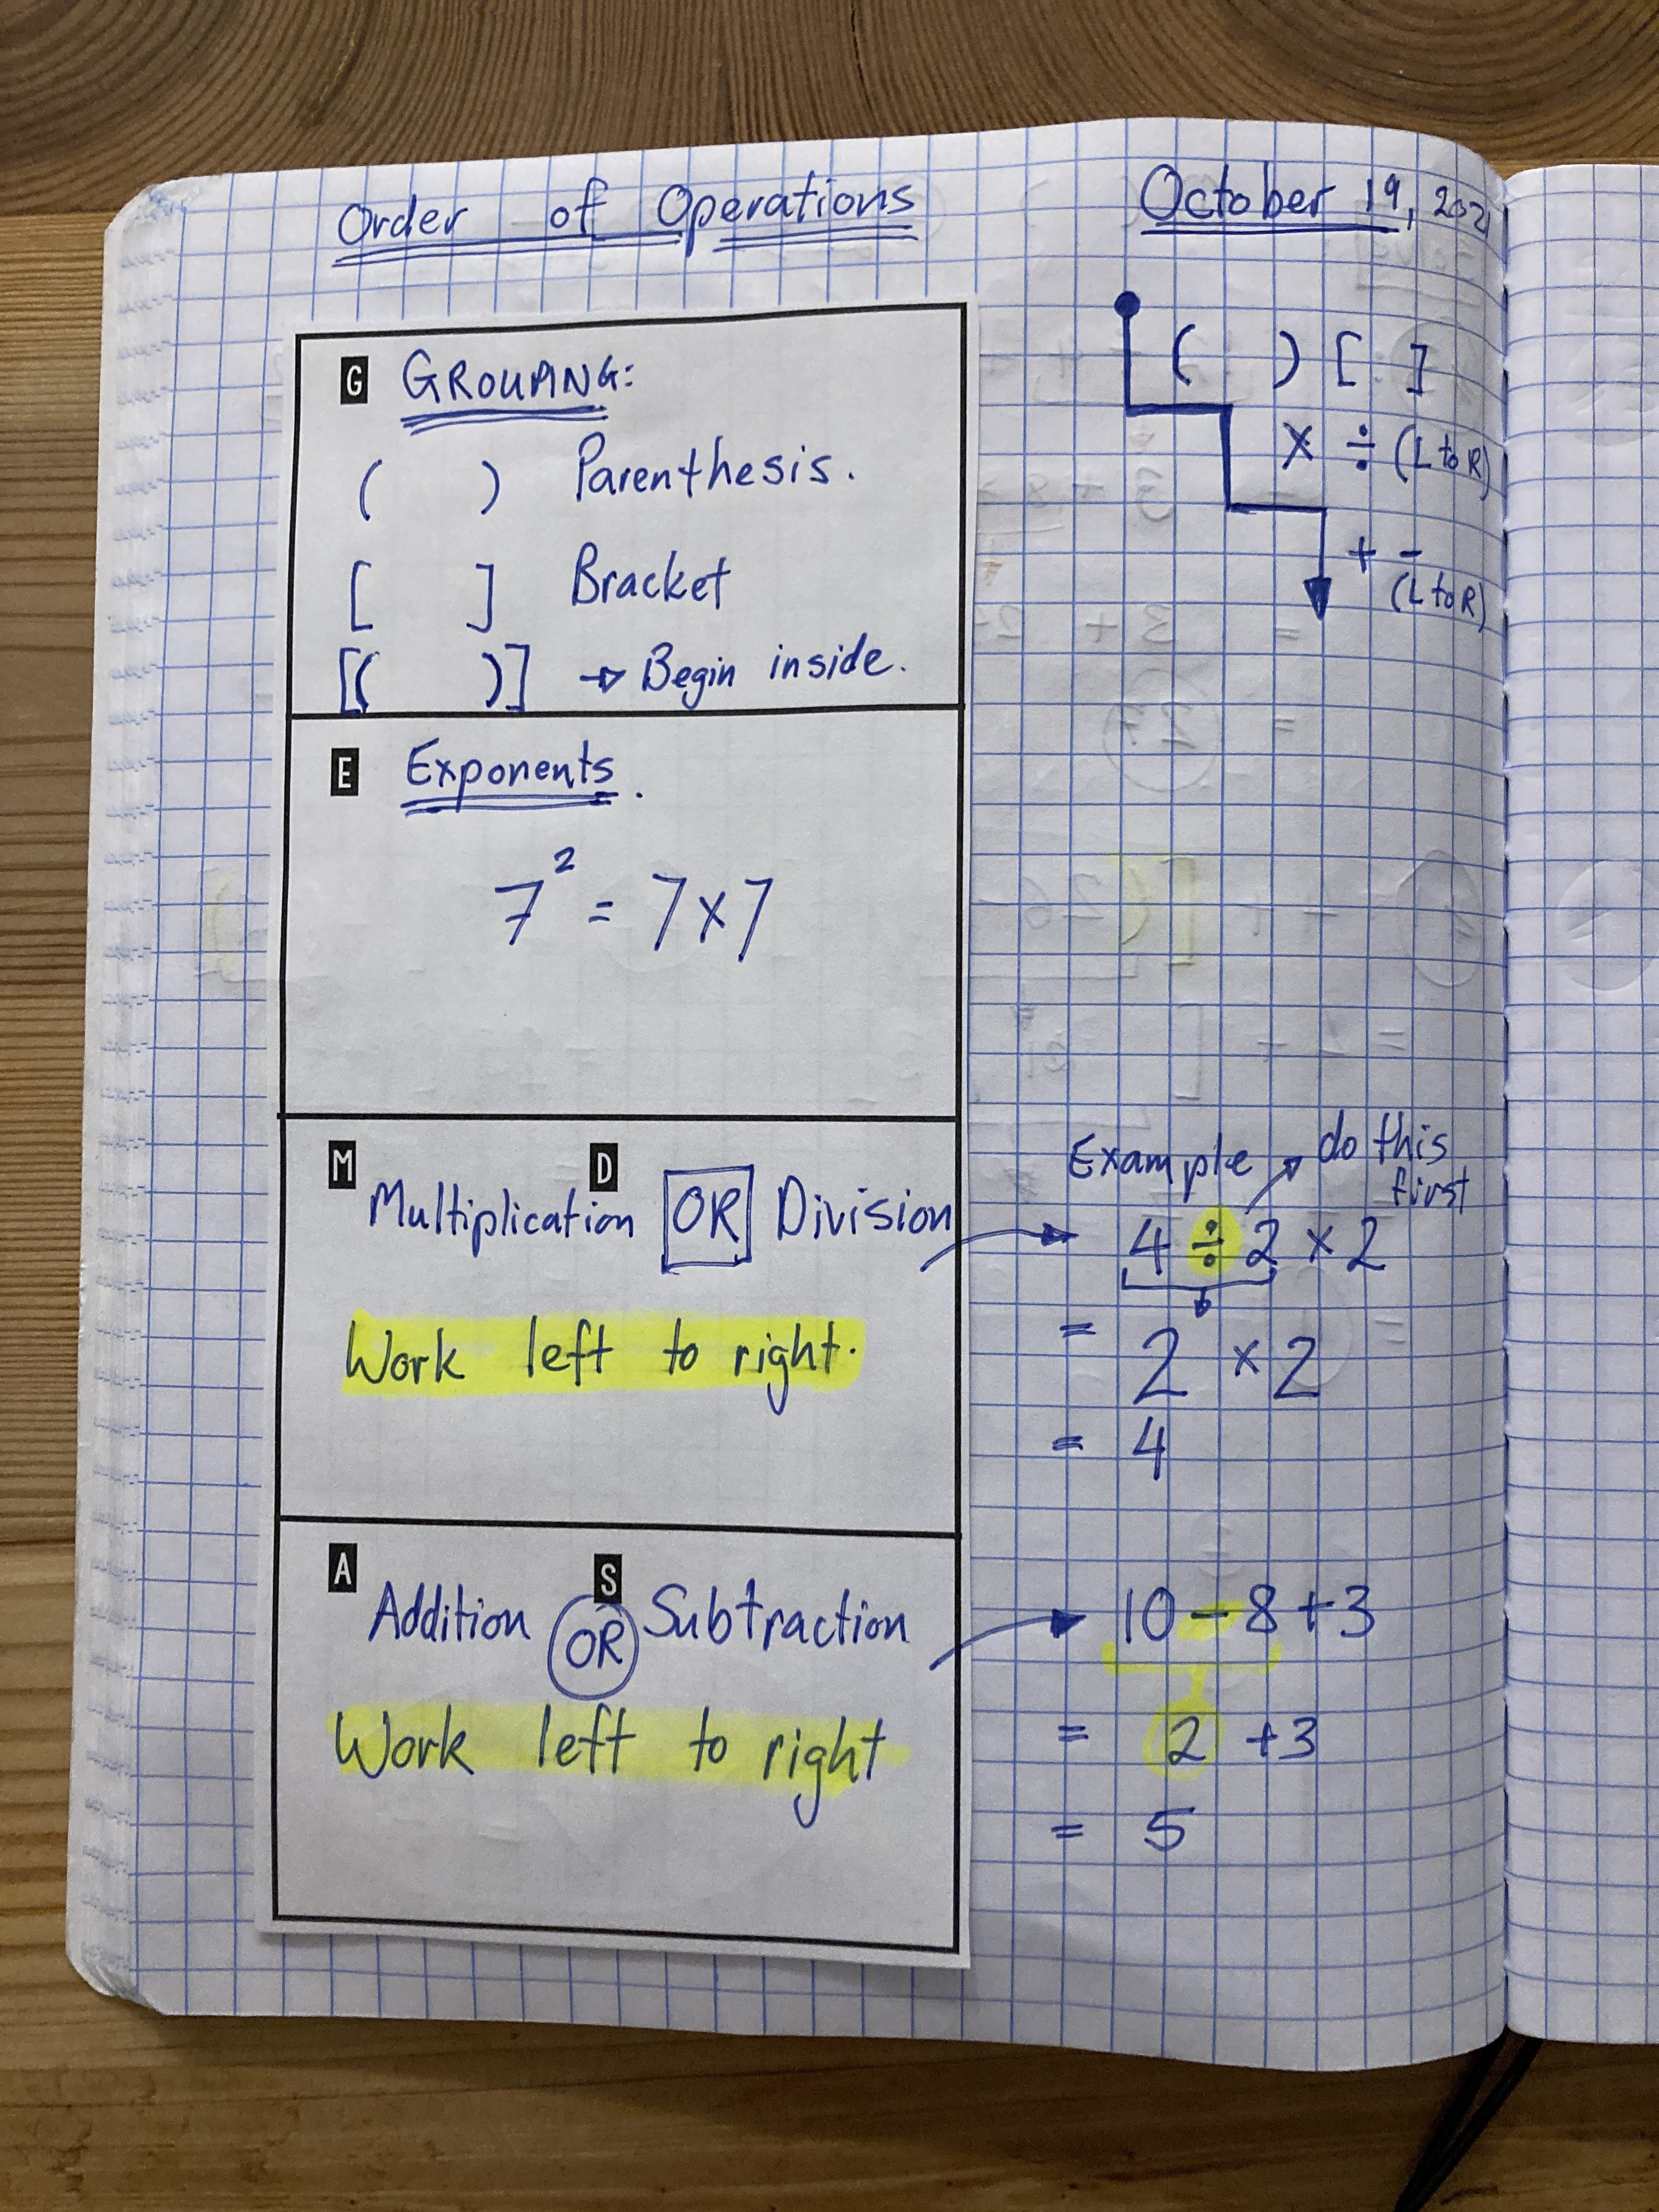 Order of Operations
October 19, 2021
G GROUPING:
( ) Parenthesis.
[ ] Bracket
[( )] → Begin inside.
( ) [ ]
× ÷ (L to R)
+ -
(L to R)
E Exponents.
7² = 7×7
M D
Multiplication OR Division
Work left to right.
Example → do this
first
4 ÷ 2 × 2
= 2 × 2
= 4
A S
Addition OR Subtraction
Work left to right
10 - 8 + 3
= 2 + 3
= 5